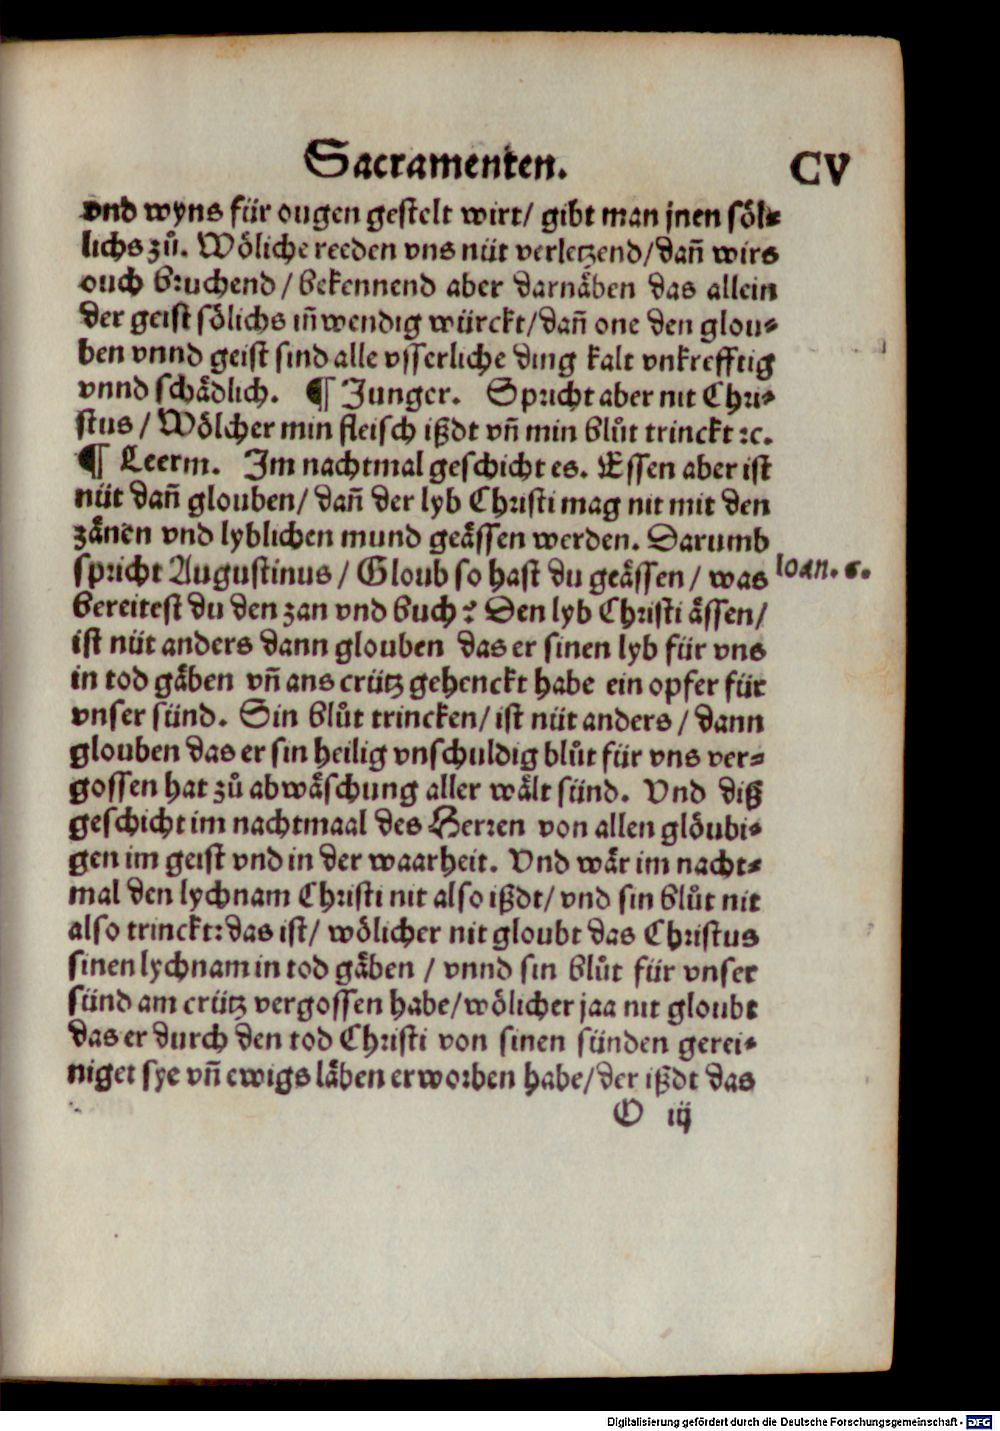 Sacramenten. CV
vnd wyns für ougen gestelt wirt/ gibt man jnen söl⸗
lichs zů. Wöliche reeden vns nüt verletzend/dañ wirs
ouch bruchend/ bekennend aber darnåben das allein
der geist sölichs iñwendig würckt/dañ one den glou⸗
ben vnnd geist sind alle vsserliche ding kalt vnkrefftig
vnnd schådlich. ¶ Junger. Spricht aber nit Chri⸗
stus/ Wölcher min fleisch ißdt vñ min blůt trinckt ꝛc.
¶ Leerm. Im nachtmal geschicht es. Essen aber ist
nüt dañ glouben/ dañ der lyb Christi mag nit mit den
zånen vnd lyblichen mund geåssen werden. Darumb
spricht Augustinus/ Gloub so hast du geåssen/ was
Ioan. 6.
bereitest du den zan vnd buch? Den lyb Christi åssen/
ist nüt anders dann glouben das er sinen lyb für vns
in tod gåben vñ ans crütz gehenckt habe ein opfer für
vnser sünd. Sin blůt trincken/ ist nüt anders/ dann
glouben das er sin heilig vnschuldig blůt für vns ver⸗
gossen hat zů abwåschung aller wålt sünd. Vnd diß
geschicht im nachtmaal des Herren von allen glöubi⸗
gen im geist vnd in der waarheit. Vnd wår im nacht⸗
mal den lychnam Christi nit also ißdt/ vnd sin blůt nit
also trinckt: das ist/ wölicher nit gloubt das Christus
sinen lychnam in tod gåben/ vnnd sin blůt für vnser
sünd am crütz vergossen habe/wölicher jaa nit gloubt
das er durch den tod Christi von sinen sünden gerei⸗
niget sye vñ ewigs låben erworben habe/der ißdt das
O iij
Digitalisierung gefördert durch die Deutsche Forschungsgemeinschaft - DFG